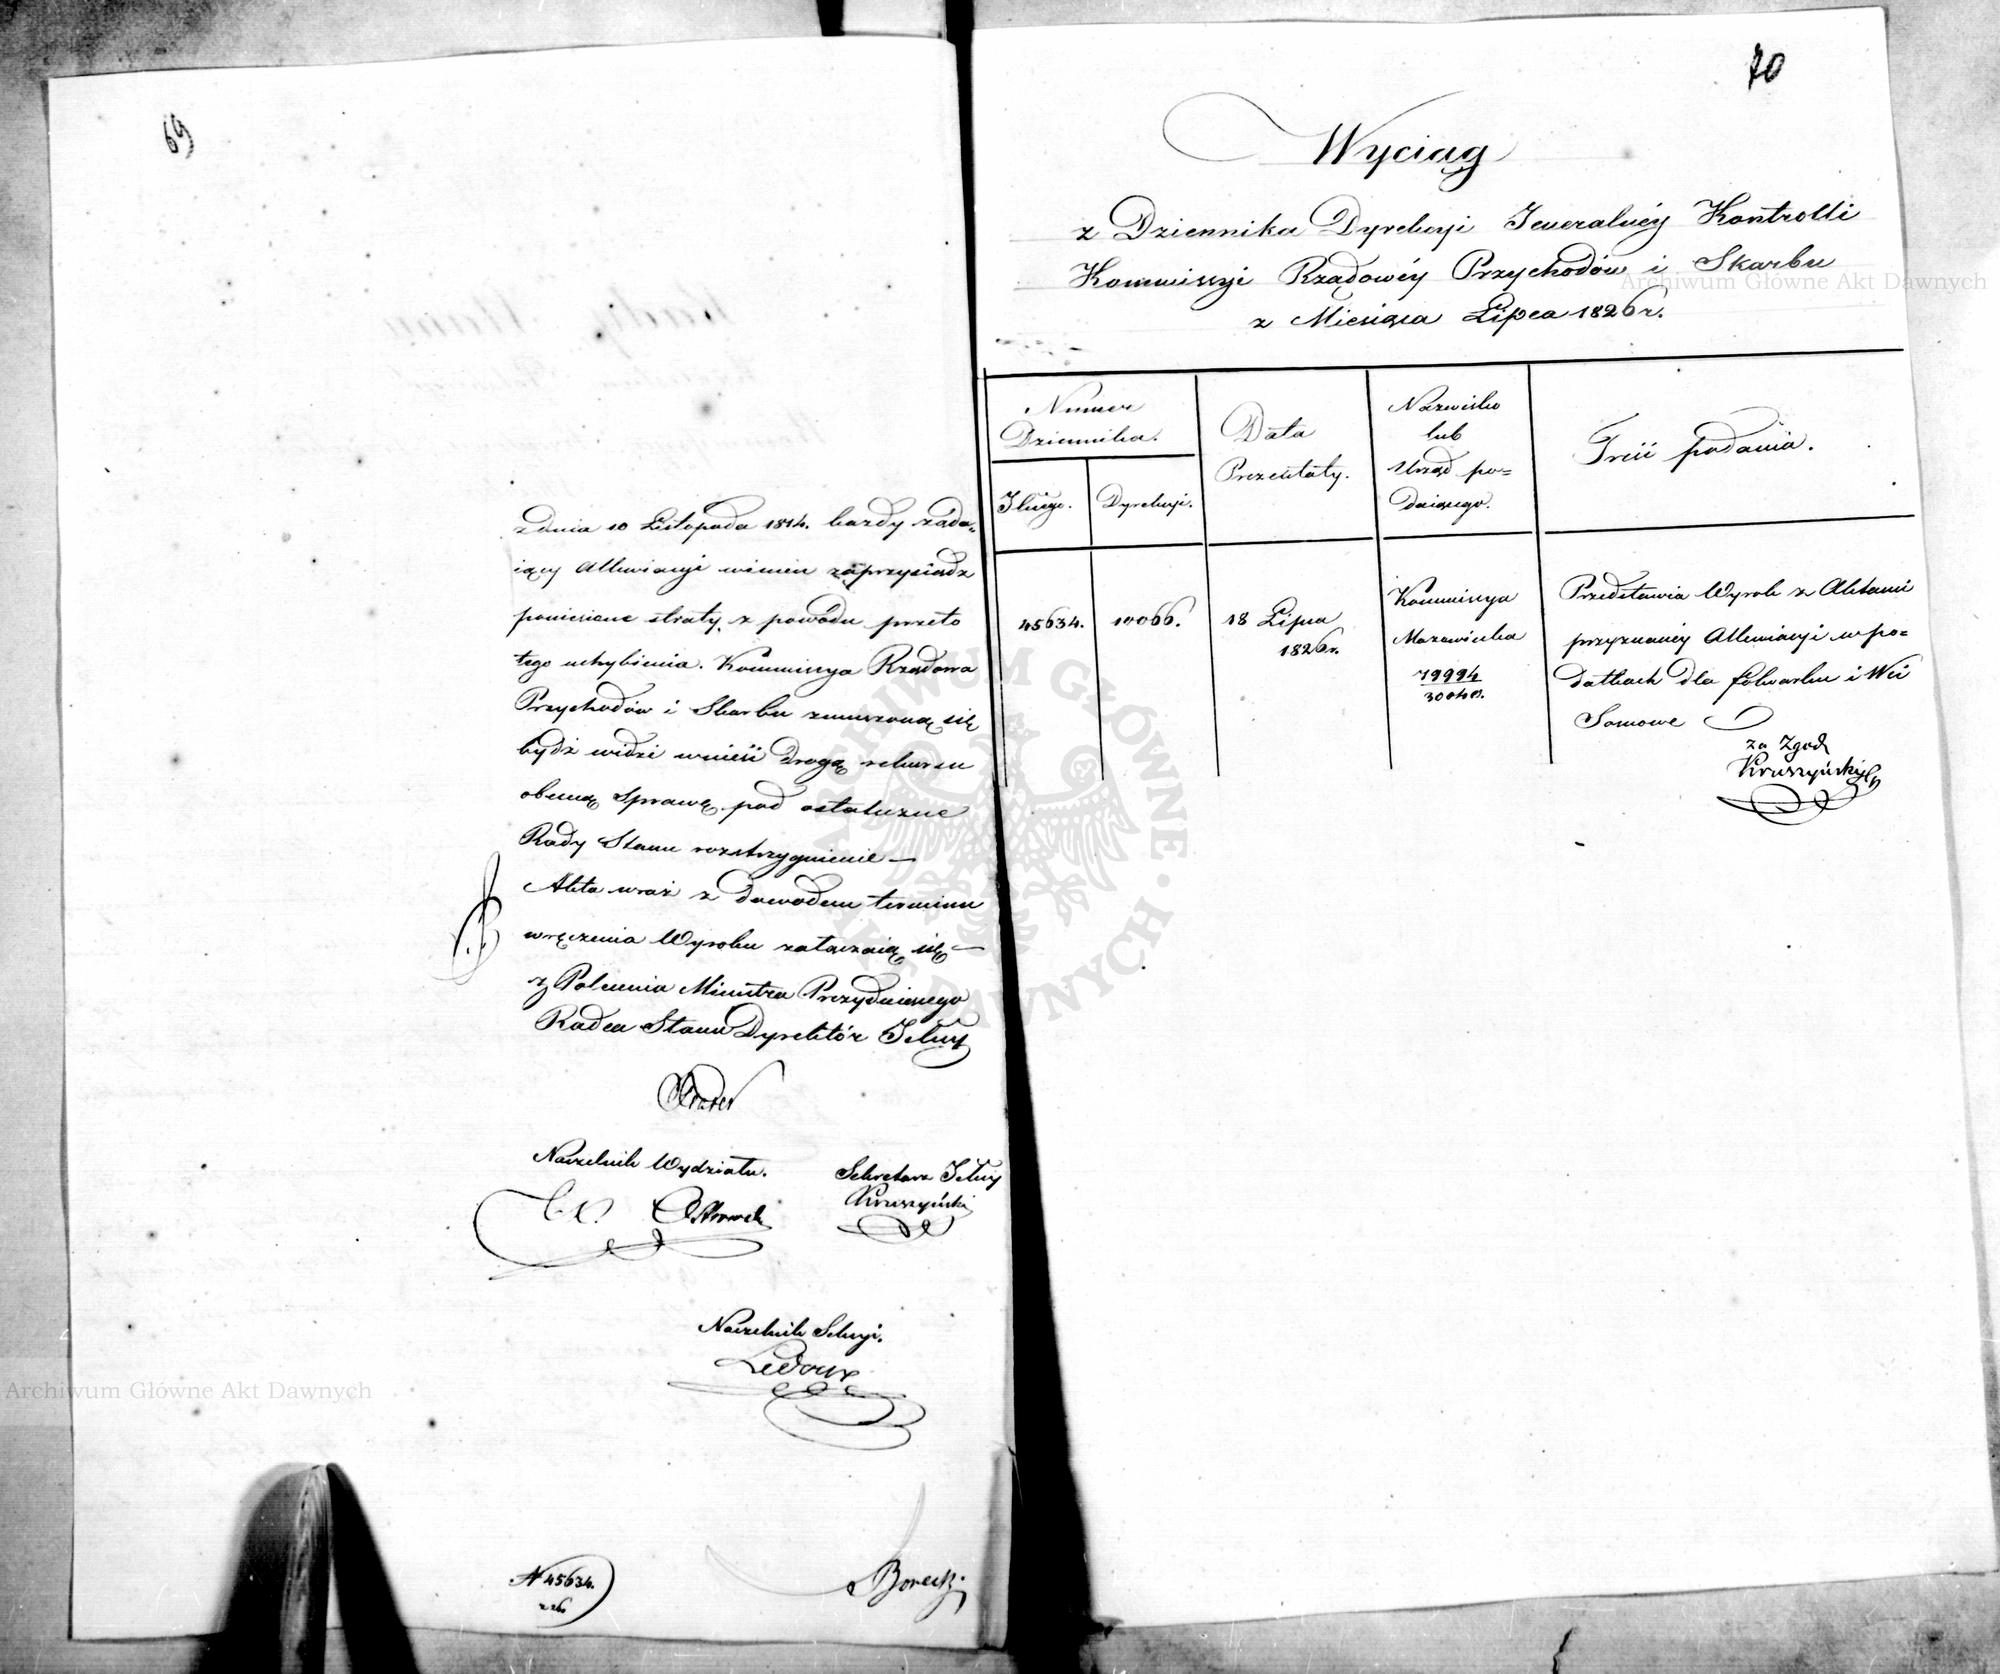 69
z dnia 10 Listopada 1814. każdy żąda-
iący Allewiacyi winien zaprzysiądz
poniesione straty, z powodu przeto
tego uchybienia. Kommissya Rządowa
Przychodów i Skarbu zmuszoną się
bydź widzi wnieść drogą rekursu
obecną sprawę pod ostateczne
Rady Stanu rozstrzygnienie —
Akta wraz z dowodem terminu
wręczenia Wyroku załączaią się —
z Polecenia Ministra Prezyduiącego
Radca Stanu Dyrektór Jlny
Naczelnik Wydziału. Sekretarz Jlny
Kruszyński
Naczelnik Sekcyi.
Ledoux
N 45634.
z 26
Borecki
70
Wyciąg
z Dziennika Dyrekcyi Jeneralnéy Kontrolli
Kommissyi Rządowéy Przychodów i Skarbu
z Miesiąca Lipca 1826 r.
Numer
Dziennika.
Jlnego. Dyrekcyi.
Data
Prezentaty.
Nazwisko
lub
Urząd po=
daiącego.
Treść podania.
45634. 10066. 18 Lipca
1826 r.
Kommissya
Mazowiecka
79994
Przedstawia Wyrok z Aktami
przyznanéy Allewiacyi w po=
datkach dla folwarku i Wsi
Somowe
za Zgod
Kruszyński
Archiwum Główne Akt Dawnych
Archiwum Główne Akt Dawnych
ARCHIWUM GŁÓWNE AKT DAWNYCH